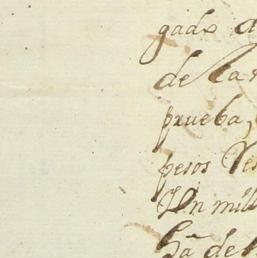 gado a
de la
prueba,
pesos
Un mill
de